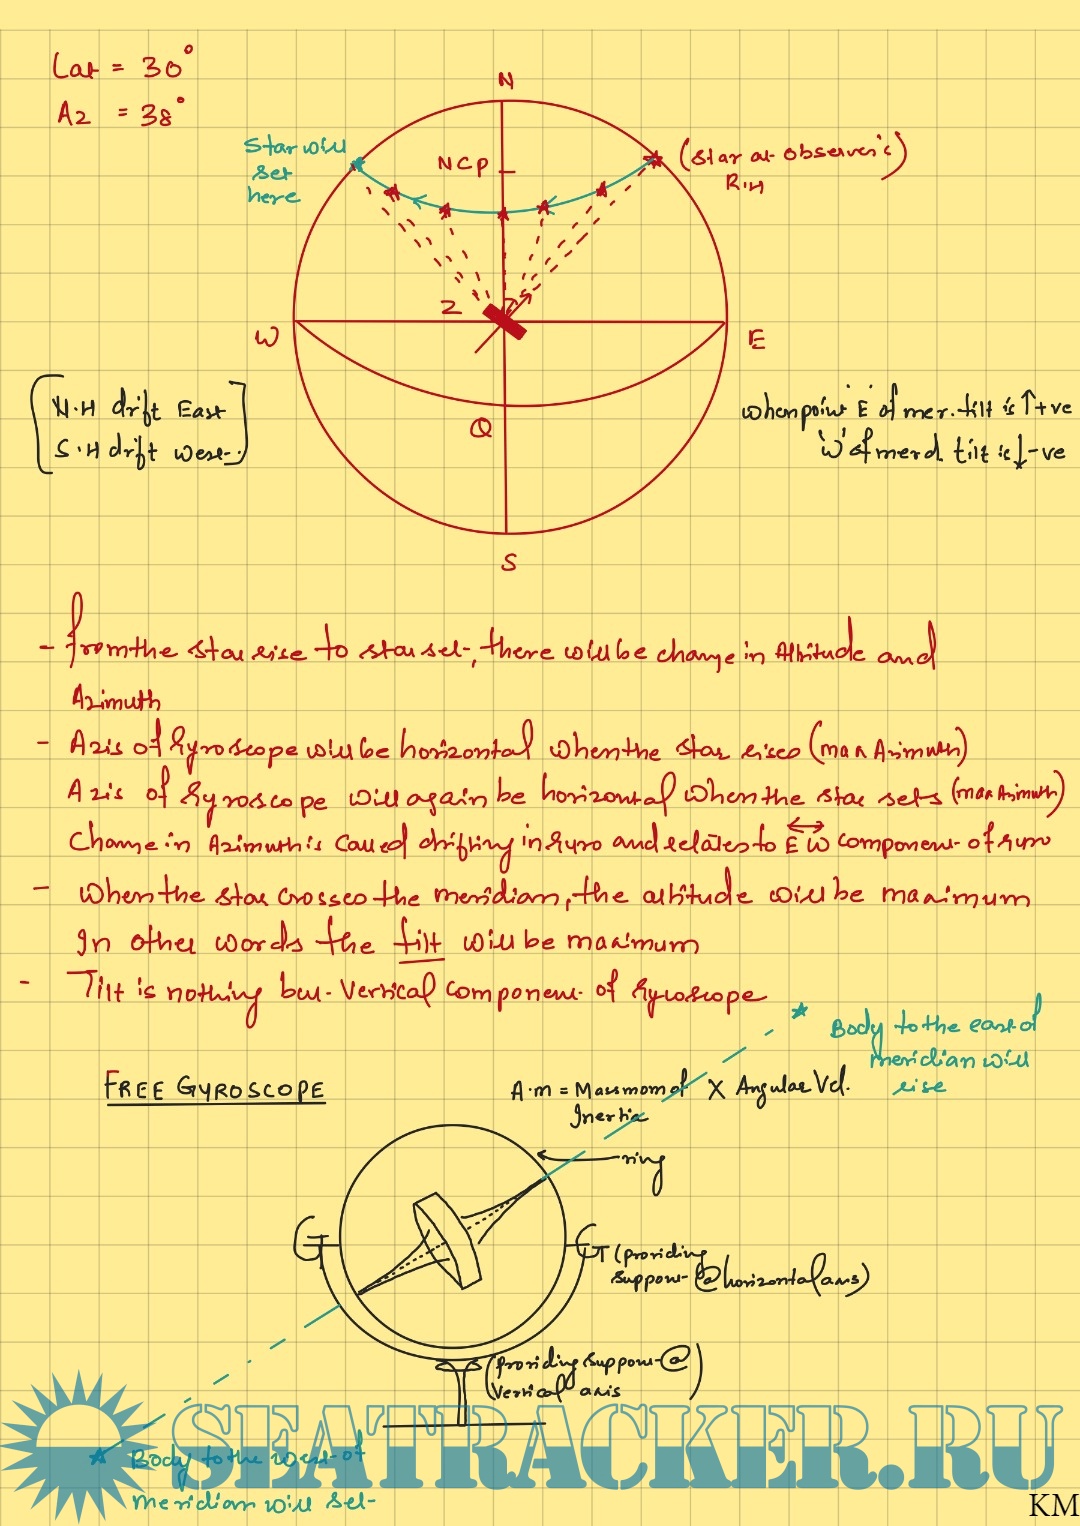 Lat = 30°
Az = 38°
N
Star will
set
here
NCP
(Star at observer's
R.H
Z
W
E
N.H drift East
S.H drift West
when point 'E' of mer. tilt is ↑ +ve
'W' of merd. tilt is ↓ -ve
Q
S
- from the star rise to star set, there will be change in Altitude and
Azimuth
- Axis of Gyroscope will be horizontal when the star rises (max Azimuth)
Axis of Gyroscope will again be horizontal when the star sets (max Azimuth)
Change in Azimuth is called drifting in gyro and relates to E W component of gyro
- When the star crosses the meridian, the altitude will be maximum
In other words the tilt will be maximum
- Tilt is nothing but Vertical component of Gyroscope
Body to the east of
meridian will
rise
FREE GYROSCOPE
A.m = Mass mom of Inertia X Angular Vel.
ring
(providing
support @ horizontal axis)
(providing support @
Vertical axis)
SEATRACKER.RU
Body to the west of
meridian will set
KM